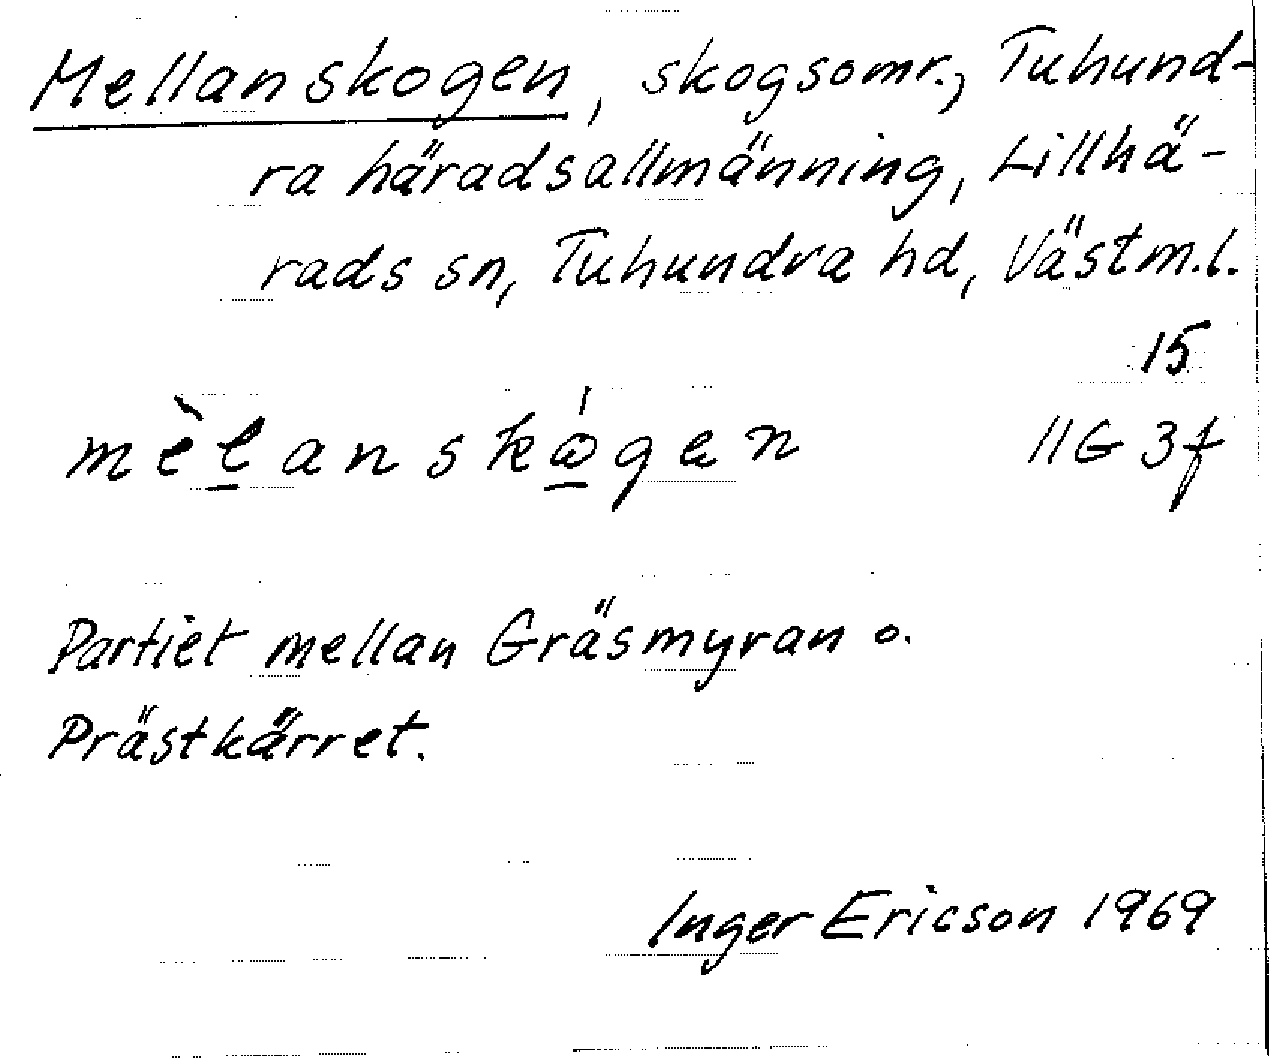 Mellanskogen, skogsomr., Tuhund-
ra häradsallmänning, Lillhä-
rads sn, Tuhundra hd, Västm.l.
15
mèl̲anskώ̲gən 11G 3f
Partiet mellan Gräsmyran o.
Prästkärret.
Inger Ericson 1969